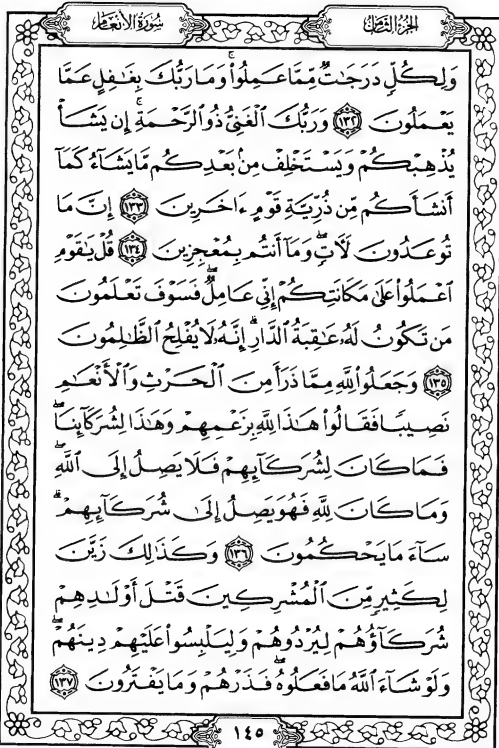 الجزء الثامن
سورة الأنعام
وَلِكُلٍّ دَرَجَٰتٌ مِّمَّا عَمِلُوا۟ ۚ وَمَا رَبُّكَ بِغَٰفِلٍ عَمَّا
يَعْمَلُونَ ﴿١٣٢﴾ وَرَبُّكَ ٱلْغَنِىُّ ذُو ٱلرَّحْمَةِ ۚ إِن يَشَأْ
يُذْهِبْكُمْ وَيَسْتَخْلِفْ مِنۢ بَعْدِكُم مَّا يَشَآءُ كَمَآ
أَنشَأَكُم مِّن ذُرِّيَّةِ قَوْمٍ ءَاخَرِينَ ﴿١٣٣﴾ إِنَّ مَا
تُوعَدُونَ لَـَٔاتٍ ۖ وَمَآ أَنتُم بِمُعْجِزِينَ ﴿١٣٤﴾ قُلْ يَٰقَوْمِ
ٱعْمَلُوا۟ عَلَىٰ مَكَانَتِكُمْ إِنِّى عَامِلٌ ۖ فَسَوْفَ تَعْلَمُونَ
مَن تَكُونُ لَهُۥ عَٰقِبَةُ ٱلدَّارِ ۗ إِنَّهُۥ لَا يُفْلِحُ ٱلظَّٰلِمُونَ
﴿١٣٥﴾ وَجَعَلُوا۟ لِلَّهِ مِمَّا ذَرَأَ مِنَ ٱلْحَرْثِ وَٱلْأَنْعَٰمِ
نَصِيبًا فَقَالُوا۟ هَٰذَا لِلَّهِ بِزَعْمِهِمْ وَهَٰذَا لِشُرَكَآئِنَا ۖ
فَمَا كَانَ لِشُرَكَآئِهِمْ فَلَا يَصِلُ إِلَى ٱللَّهِ ۖ
وَمَا كَانَ لِلَّهِ فَهُوَ يَصِلُ إِلَىٰ شُرَكَآئِهِمْ ۗ
سَآءَ مَا يَحْكُمُونَ ﴿١٣٦﴾ وَكَذَٰلِكَ زَيَّنَ
لِكَثِيرٍ مِّنَ ٱلْمُشْرِكِينَ قَتْلَ أَوْلَٰدِهِمْ
شُرَكَآؤُهُمْ لِيُرْدُوهُمْ وَلِيَلْبِسُوا۟ عَلَيْهِمْ دِينَهُمْ ۖ
وَلَوْ شَآءَ ٱللَّهُ مَا فَعَلُوهُ ۖ فَذَرْهُمْ وَمَا يَفْتَرُونَ ﴿١٣٧﴾
١٤٥